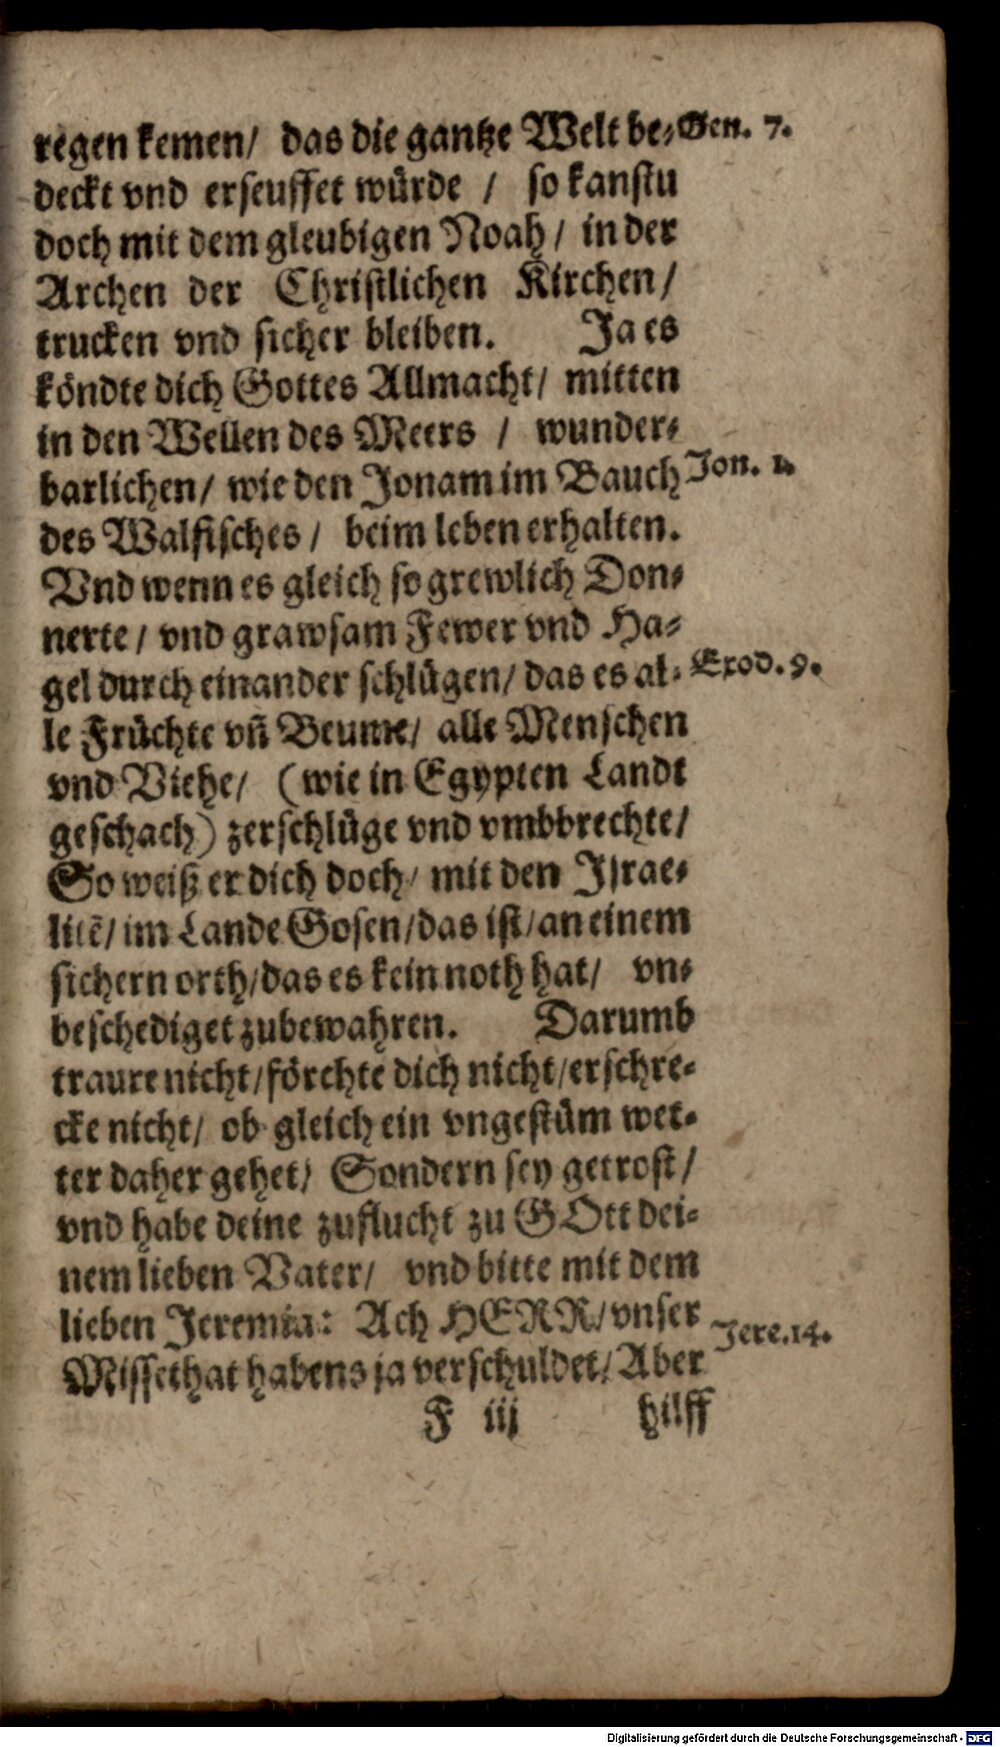 regen kemen/ das die gantze Welt be⸗ Gen. 7.
deckt vnd erseuffet würde / so kanstu
doch mit dem gleubigen Noah/ in der
Archen der Christlichen Kirchen/
trucken vnd sicher bleiben. Ja es
köndte dich Gottes Allmacht/ mitten
in den Wellen des Meers / wunder⸗
barlichen/ wie den Jonam im Bauch Jon. 1.
des Walfisches/ beim leben erhalten.
Vnd wenn es gleich so grewlich Don⸗
nerte/ vnd grawsam Fewer vnd Ha⸗
gel durch einander schlügen/ das es al⸗ Exod. 9.
le Früchte vñ Beume/ alle Menschen
vnd Viehe/ (wie in Egypten Landt
geschach) zerschlüge vnd vmbbrechte/
So weiß er dich doch/ mit den Israe⸗
litē/ im Lande Gosen/das ist/an einem
sichern orth/das es kein noth hat/ vn⸗
beschediget zubewahren. Darumb
traure nicht/förchte dich nicht/erschre⸗
cke nicht/ ob gleich ein vngestüm wet⸗
ter daher gehet/ Sondern sey getrost/
vnd habe deine zuflucht zu GOtt dei⸗
nem lieben Vater/ vnd bitte mit dem
lieben Jeremia: Ach HERR/vnser Jere.14.
Missethat habens ja verschuldet/Aber
F iij hilff
Digitalisierung gefördert durch die Deutsche Forschungsgemeinschaft - DFG